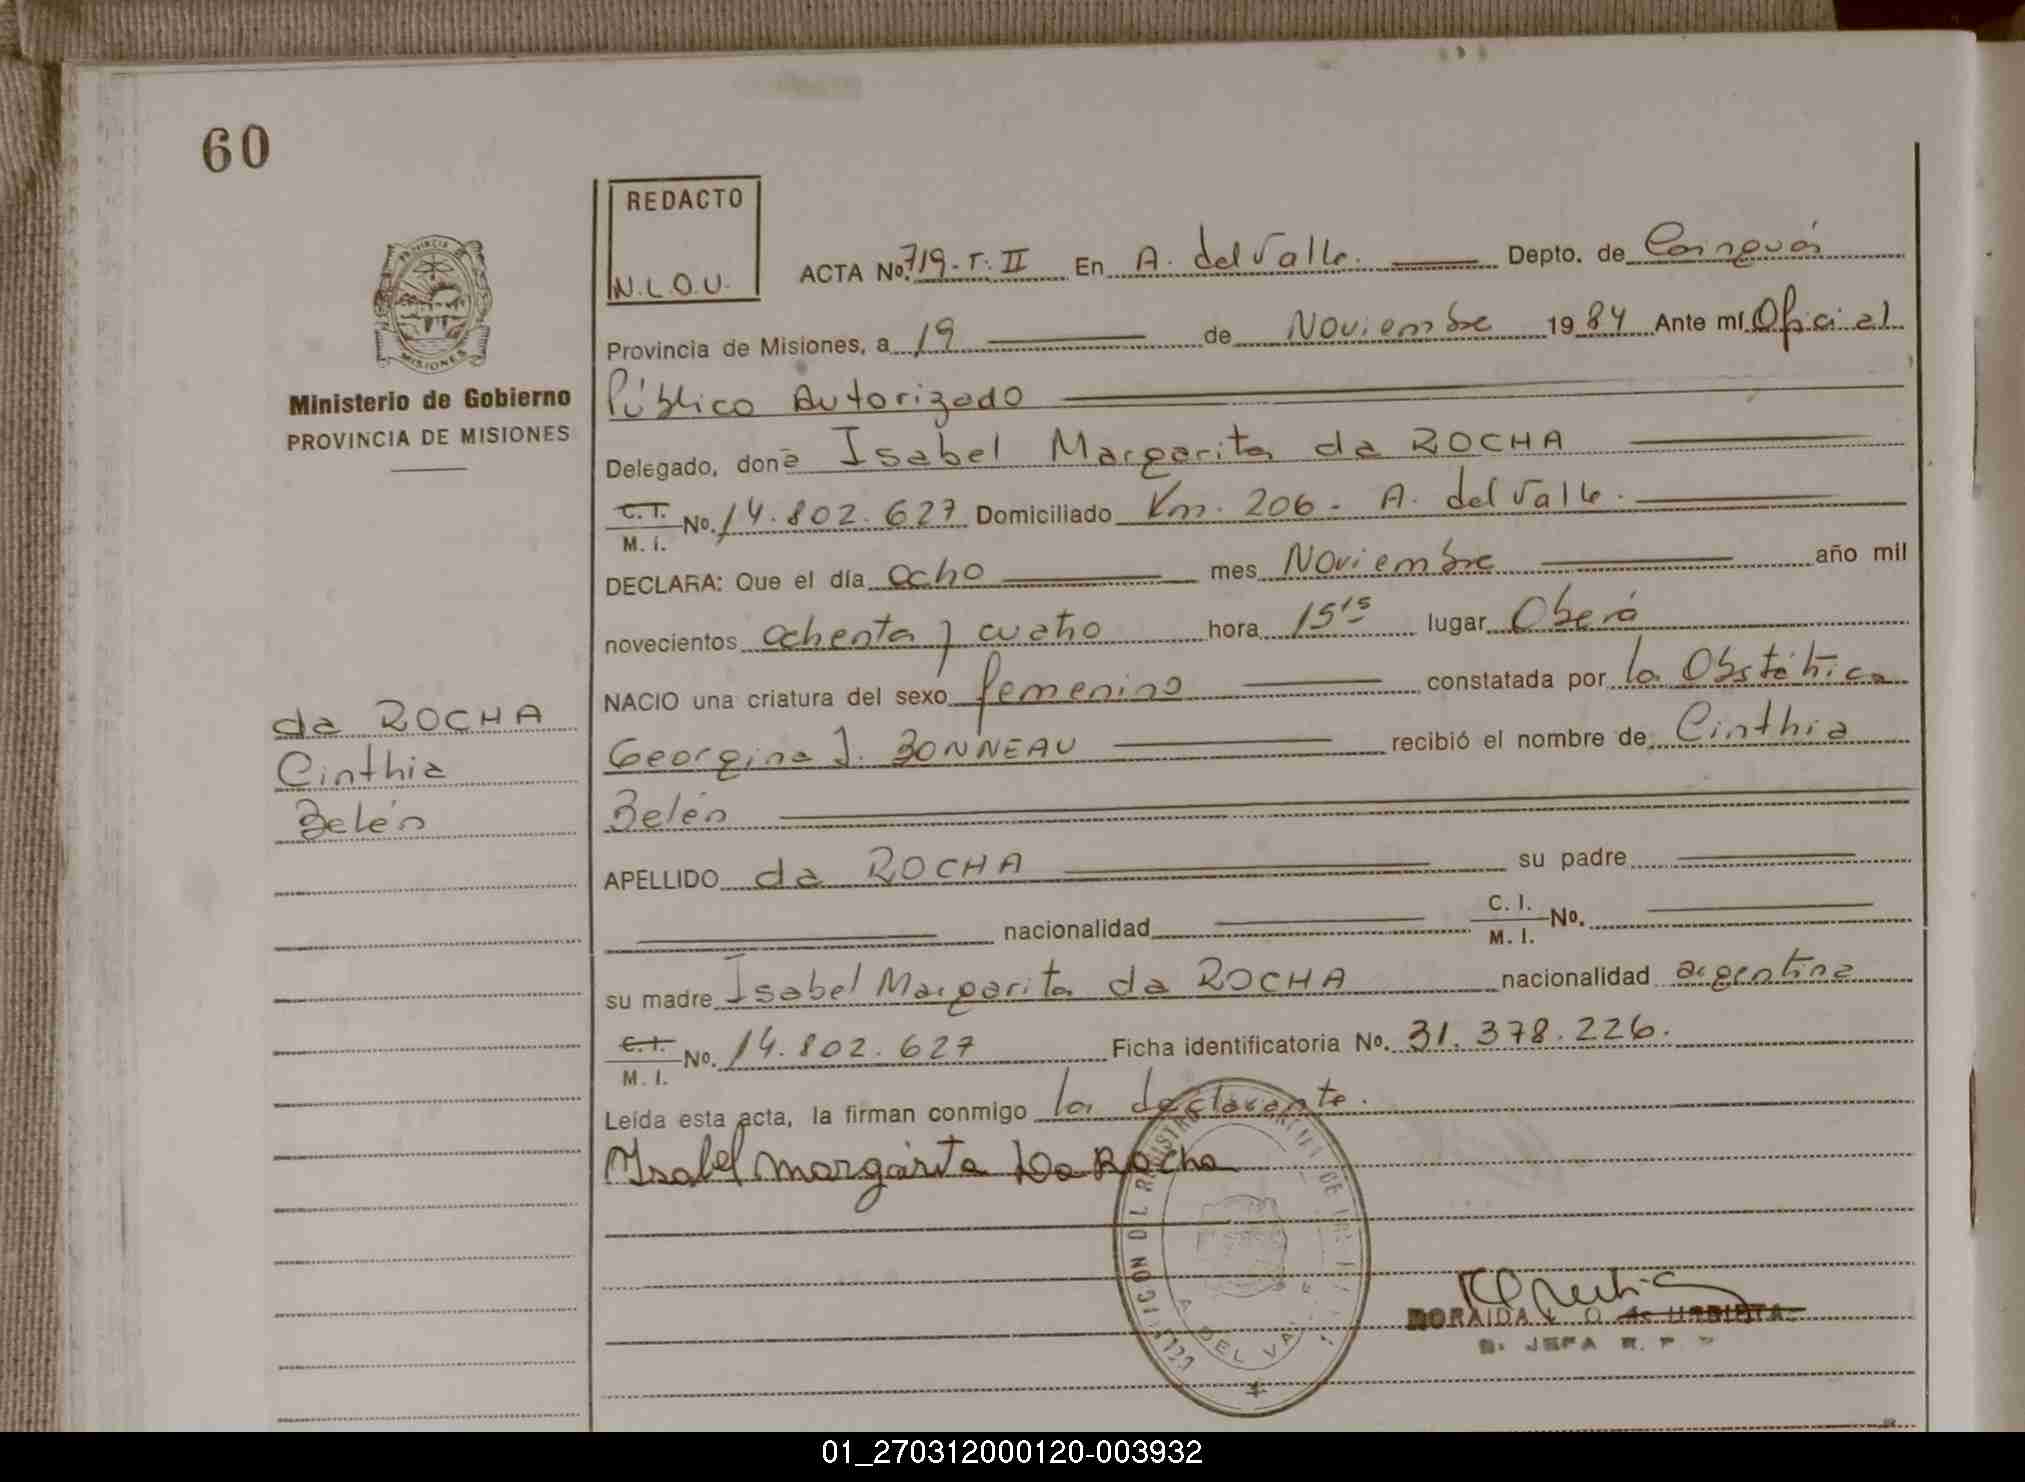 60
REDACTO
N.L.O.U.
PROVINCIA DE
MISIONES
Ministerio de Gobierno
PROVINCIA DE MISIONES
ACTA No. 719-T. II En A. del Valle. Depto. de Cainguás
Provincia de Misiones, a 19 de Noviembre 1984 Ante mí Oficial
Público Autorizado
Delegado, doña Isabel Margarita da ROCHA
C.I.
M. I. No. 14.802.627 Domiciliado Km. 206 - A. del Valle.
DECLARA: Que el día ocho mes Noviembre año mil
novecientos ochenta y cuatro hora 15 15 lugar Oberá
NACIO una criatura del sexo femenino constatada por la Obstétrica
Georgina J. BONNEAU recibió el nombre de Cinthia
Belén
APELLIDO da ROCHA su padre
nacionalidad C. I.
M. I. No.
su madre Isabel Margarita da ROCHA nacionalidad argentina
C.I.
M. I. No. 14.802.627 Ficha identificatoria No. 31.378.226.
Leída esta acta, la firman conmigo la declarante.
Isabel margarita Da Rocha
da ROCHA
Cinthia
Belén
A. DEL VALLE
DORAIDA L. O. de URBIETA
JEFA R. P.
01_270312000120-003932